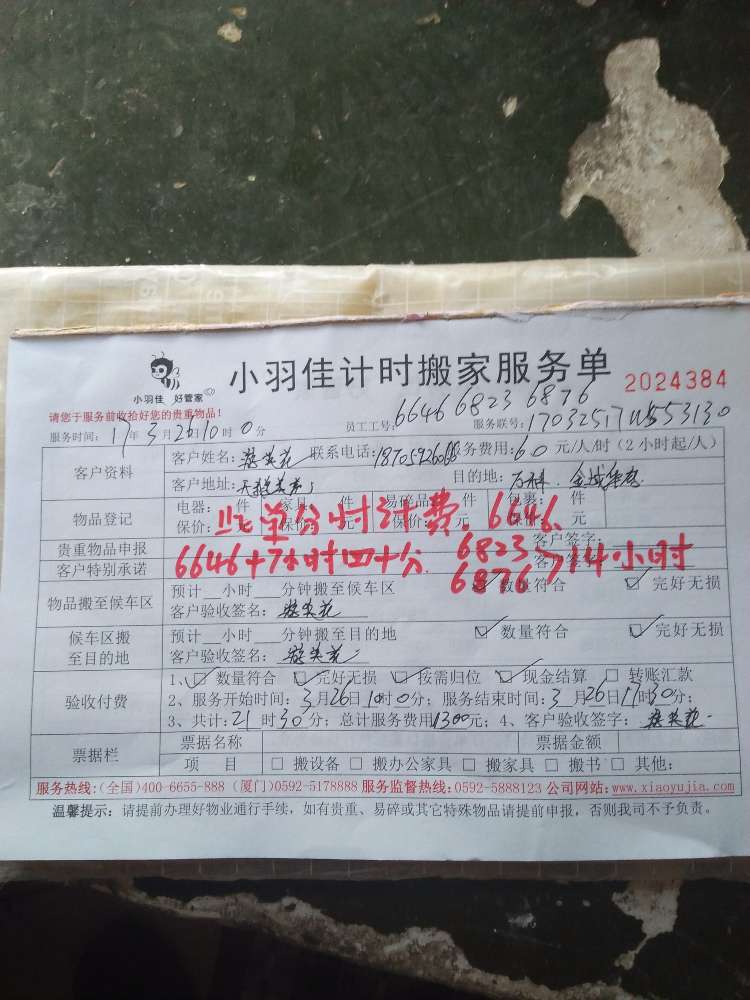 小羽佳 好管家
小羽佳计时搬家服务单
2024384
请您于服务前收拾好您的贵重物品!
6646 6823 6876
服务时间:17年3月26日10时0分 员工工号: 服务联号:
客户资料
客户姓名: 联系电话: 服务费用:60元/人/时(2小时起/人)
客户地址: 目的地:万科.
物品登记
电器: 件 家具: 件 易碎品: 件 包裹: 件
保价: 元 保价: 元 保价: 元 保价: 元
此单分时计费 6646
贵重物品申报 客户签字:
6646+7小时四十分 6823
6876 >14小时
客户特别承诺 客户签字:
物品搬至候车区
预计 小时 分钟搬至候车区 ☑数量符合 ☑完好无损
客户验收签名:
候车区搬至目的地
预计 小时 分钟搬至目的地 ☑数量符合 ☑完好无损
客户验收签名:
验收付费
1、☑数量符合 ☑完好无损 ☑按需归位 ☑现金结算 □转账汇款
2、服务开始时间:3月26日10时0分; 服务结束时间:3月26日17时30分;
3、共计:21时30分; 总计服务费用1300元; 4、客户验收签字:
票据栏
票据名称 票据金额
项 目 □搬设备 □搬办公家具 □搬家具 □搬书 □其他:
服务热线:(全国)400-6655-888 (厦门)0592-5178888 服务监督热线:0592-5888123 公司网站:www.xiaoyujia.com
温馨提示: 请提前办理好物业通行手续, 如有贵重、易碎或其它特殊物品请提前申报, 否则我司不予负责。